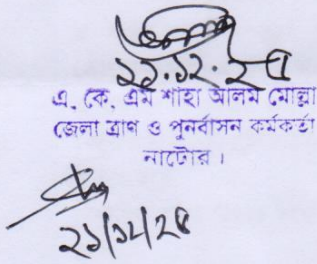 ২১.১২.২৫
এ, কে, এম শাহা আলম মোল্লা
জেলা ত্রাণ ও পুনর্বাসন কর্মকর্তা
নাটোর।
২১/১২/২৫